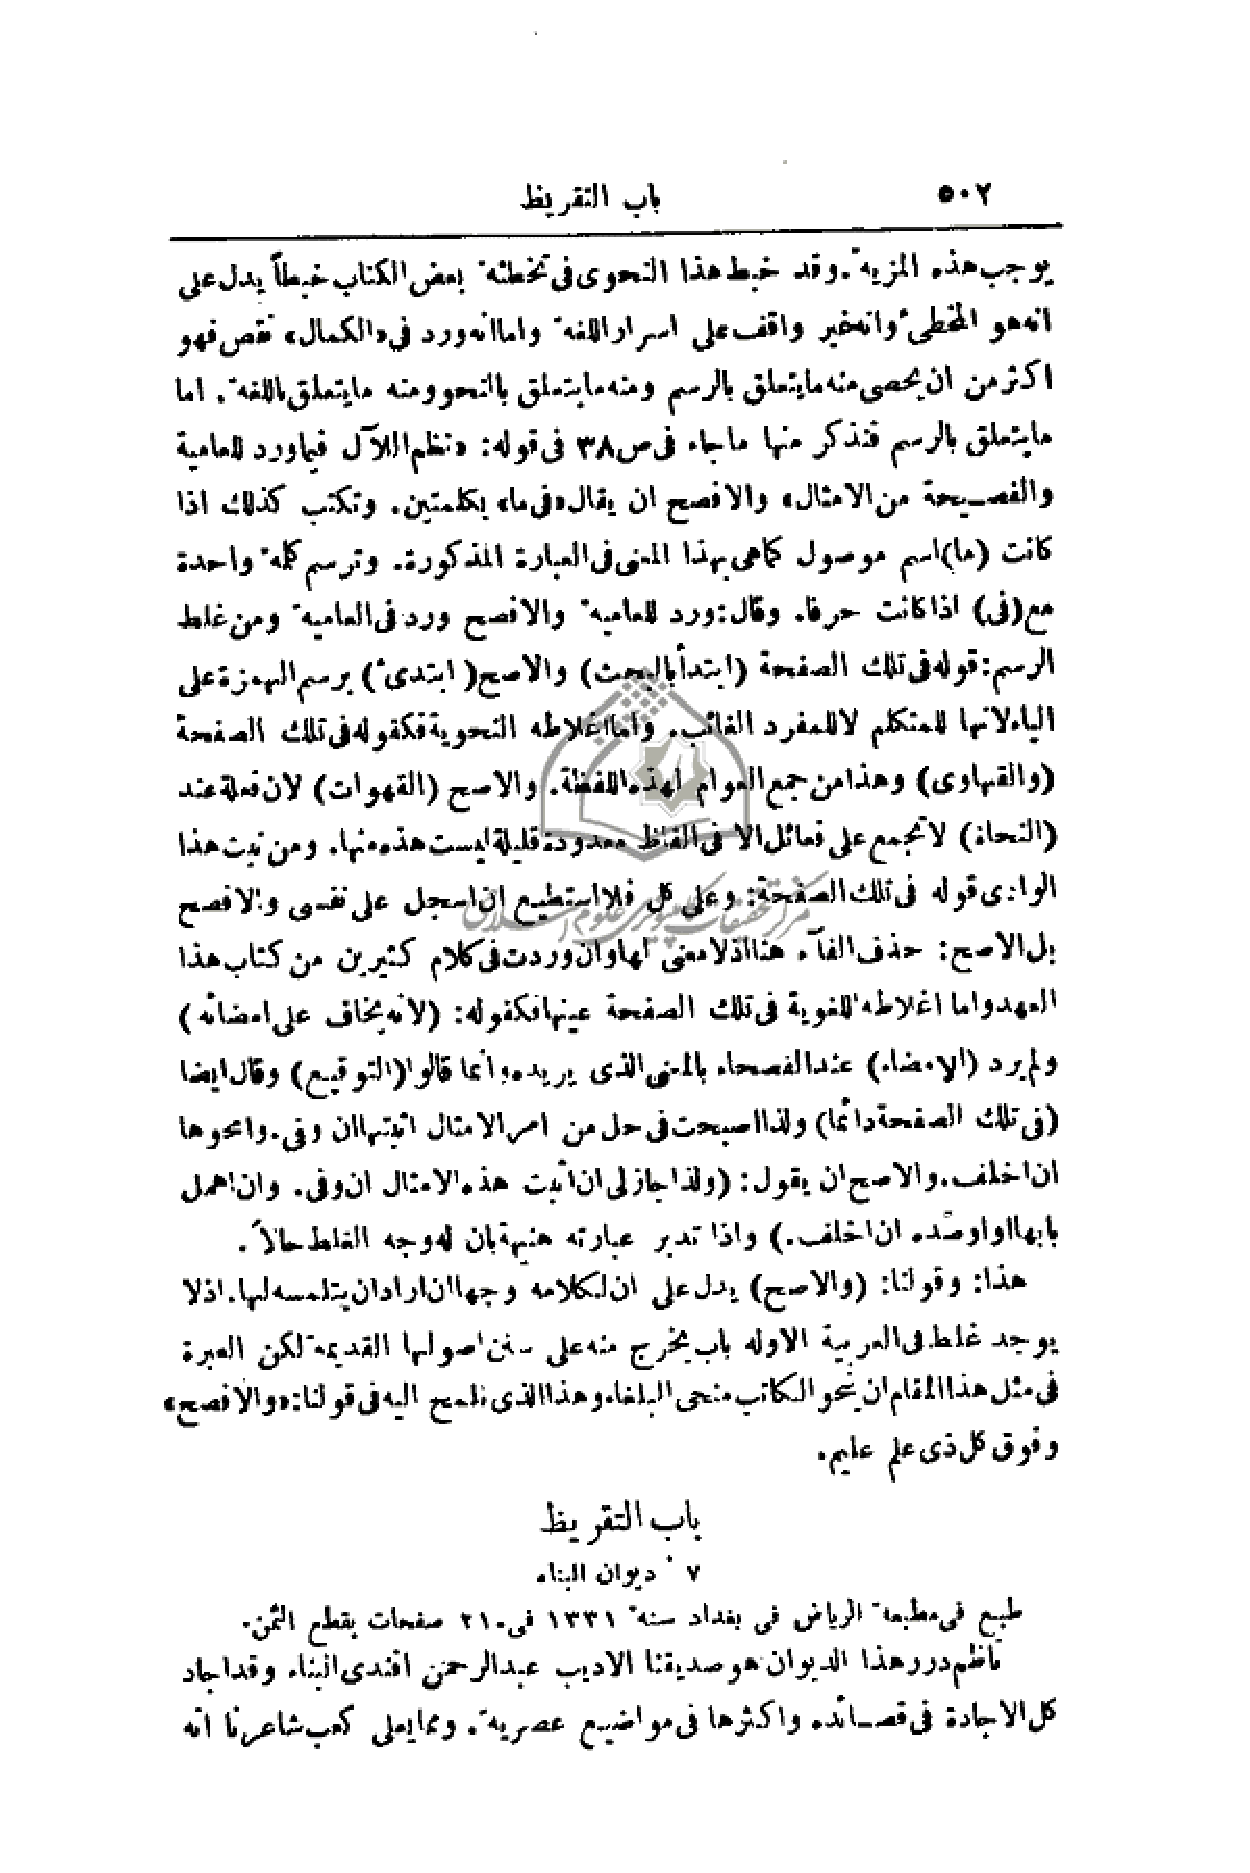 ٥٠٢ باب التقريظ
يوجب هذه المزيةَ. وقد خبط هذا النحوى فى تخطئةَ بعض الكتاب خبطاً يدل على
انه هو المخطئ وانه غير واقف على اسرار اللغةَ واما انه ورد فى «الكمال» نقص فهو
اكثر من ان يحصى منه ما يتعلق بالرسم ومنه ما يتعلق بالنحو ومنه ما يتعلق باللغةَ. اما
ما يتعلق بالرسم فنذكر منها ما جاء فى ص ٣٨ فى قوله: «نظم اللآل فيما ورد للعامية
والفصـيحة من الامثال» والافصح ان يقال «فى ما» بكلمتين. وتكتب كذلك اذا
كانت (ما) اسم موصول كما هى بهذا المعنى فى العبارة المذكورة. وترسم كلمةَ واحدة
مع (فى) اذا كانت حرفا. وقال: ورد للعاميةَ والافصح ورد فى العاميةَ ومن غلط
الرسم: قوله فى تلك الصفحة (ابتدأ بالبحث) والاصح (ابتدئ) برسم الهمزة على
الياء لانها للمتكلم لا للمفرد الغائب. واما اغلاطه النحوية فكقوله فى تلك الصفحة
(والقهاوى) وهذا من جمع العوام لهذه اللفظة. والاصح (القهوات) لان فعلة عند
(النحاة) لا تجمع على فعائل الا فى الفاظ معدودة قليلة ليست هذه منها. ومن نبت هذا
الوادى قوله فى تلك الصفحة: وعلى كل فلا استطيع ان اسجل على نفسى والافصح
بل الاصح: حذف الفآء هنا اذ لا معنى لها وان وردت فى كلام كثيرين من كتاب هذا
العهد واما اغلاطه اللغوية فى تلك الصفحة عينها فكقوله: (لانه يخاف على امضائه)
ولم يرد (الامضاء) عند الفصحاء بالمعنى الذى يريده وانما قالوا (التوقيع) وقال ايضا
(فى تلك الصفحة دائما) ولذا اصبحت فى حل من امر الامثال اثبتها ان وفى. وامحوها
ان اخلف. والاصح ان يقول: (ولذا جاز لى ان اثبت هذه الامثال ان وفى. وان اهمل
بابها او اوصده ان اخلف.) واذا تدبر عبارته هنيهة بان له وجه الغلط حالاً.
هذا: وقولنا: (والاصح) يدل على ان لكلامه وجها ان اراد ان يتلمسه لها. اذ لا
يوجد غلط فى العربية الا وله باب يخرج منه على سنن اصولها القديمةَ لكن العبرة
فى مثل هذا المقام ان ينحو الكاتب منحى البلغاء وهذا الذى نلمح اليه فى قولنا: «والافصح»
وفوق كل ذى علم عليم.
باب التقريظ
٧ ٠ ديوان البناء
طبع فى مطبعةَ الرياض فى بغداد سنةَ ١٣٣١ فى ٢١٠ صفحات بقطع الثمن.
ناظم درر هذا الديوان هو صديقنا الاديب عبد الرحمن افندى البناء وقد اجاد
كل الاجادة فى قصـائده واكثرها فى مواضيع عصريةَ. ومما يعلى كعب شاعرنا انه
مرکز تحقیقات کامپیوتری علوم اسلامی